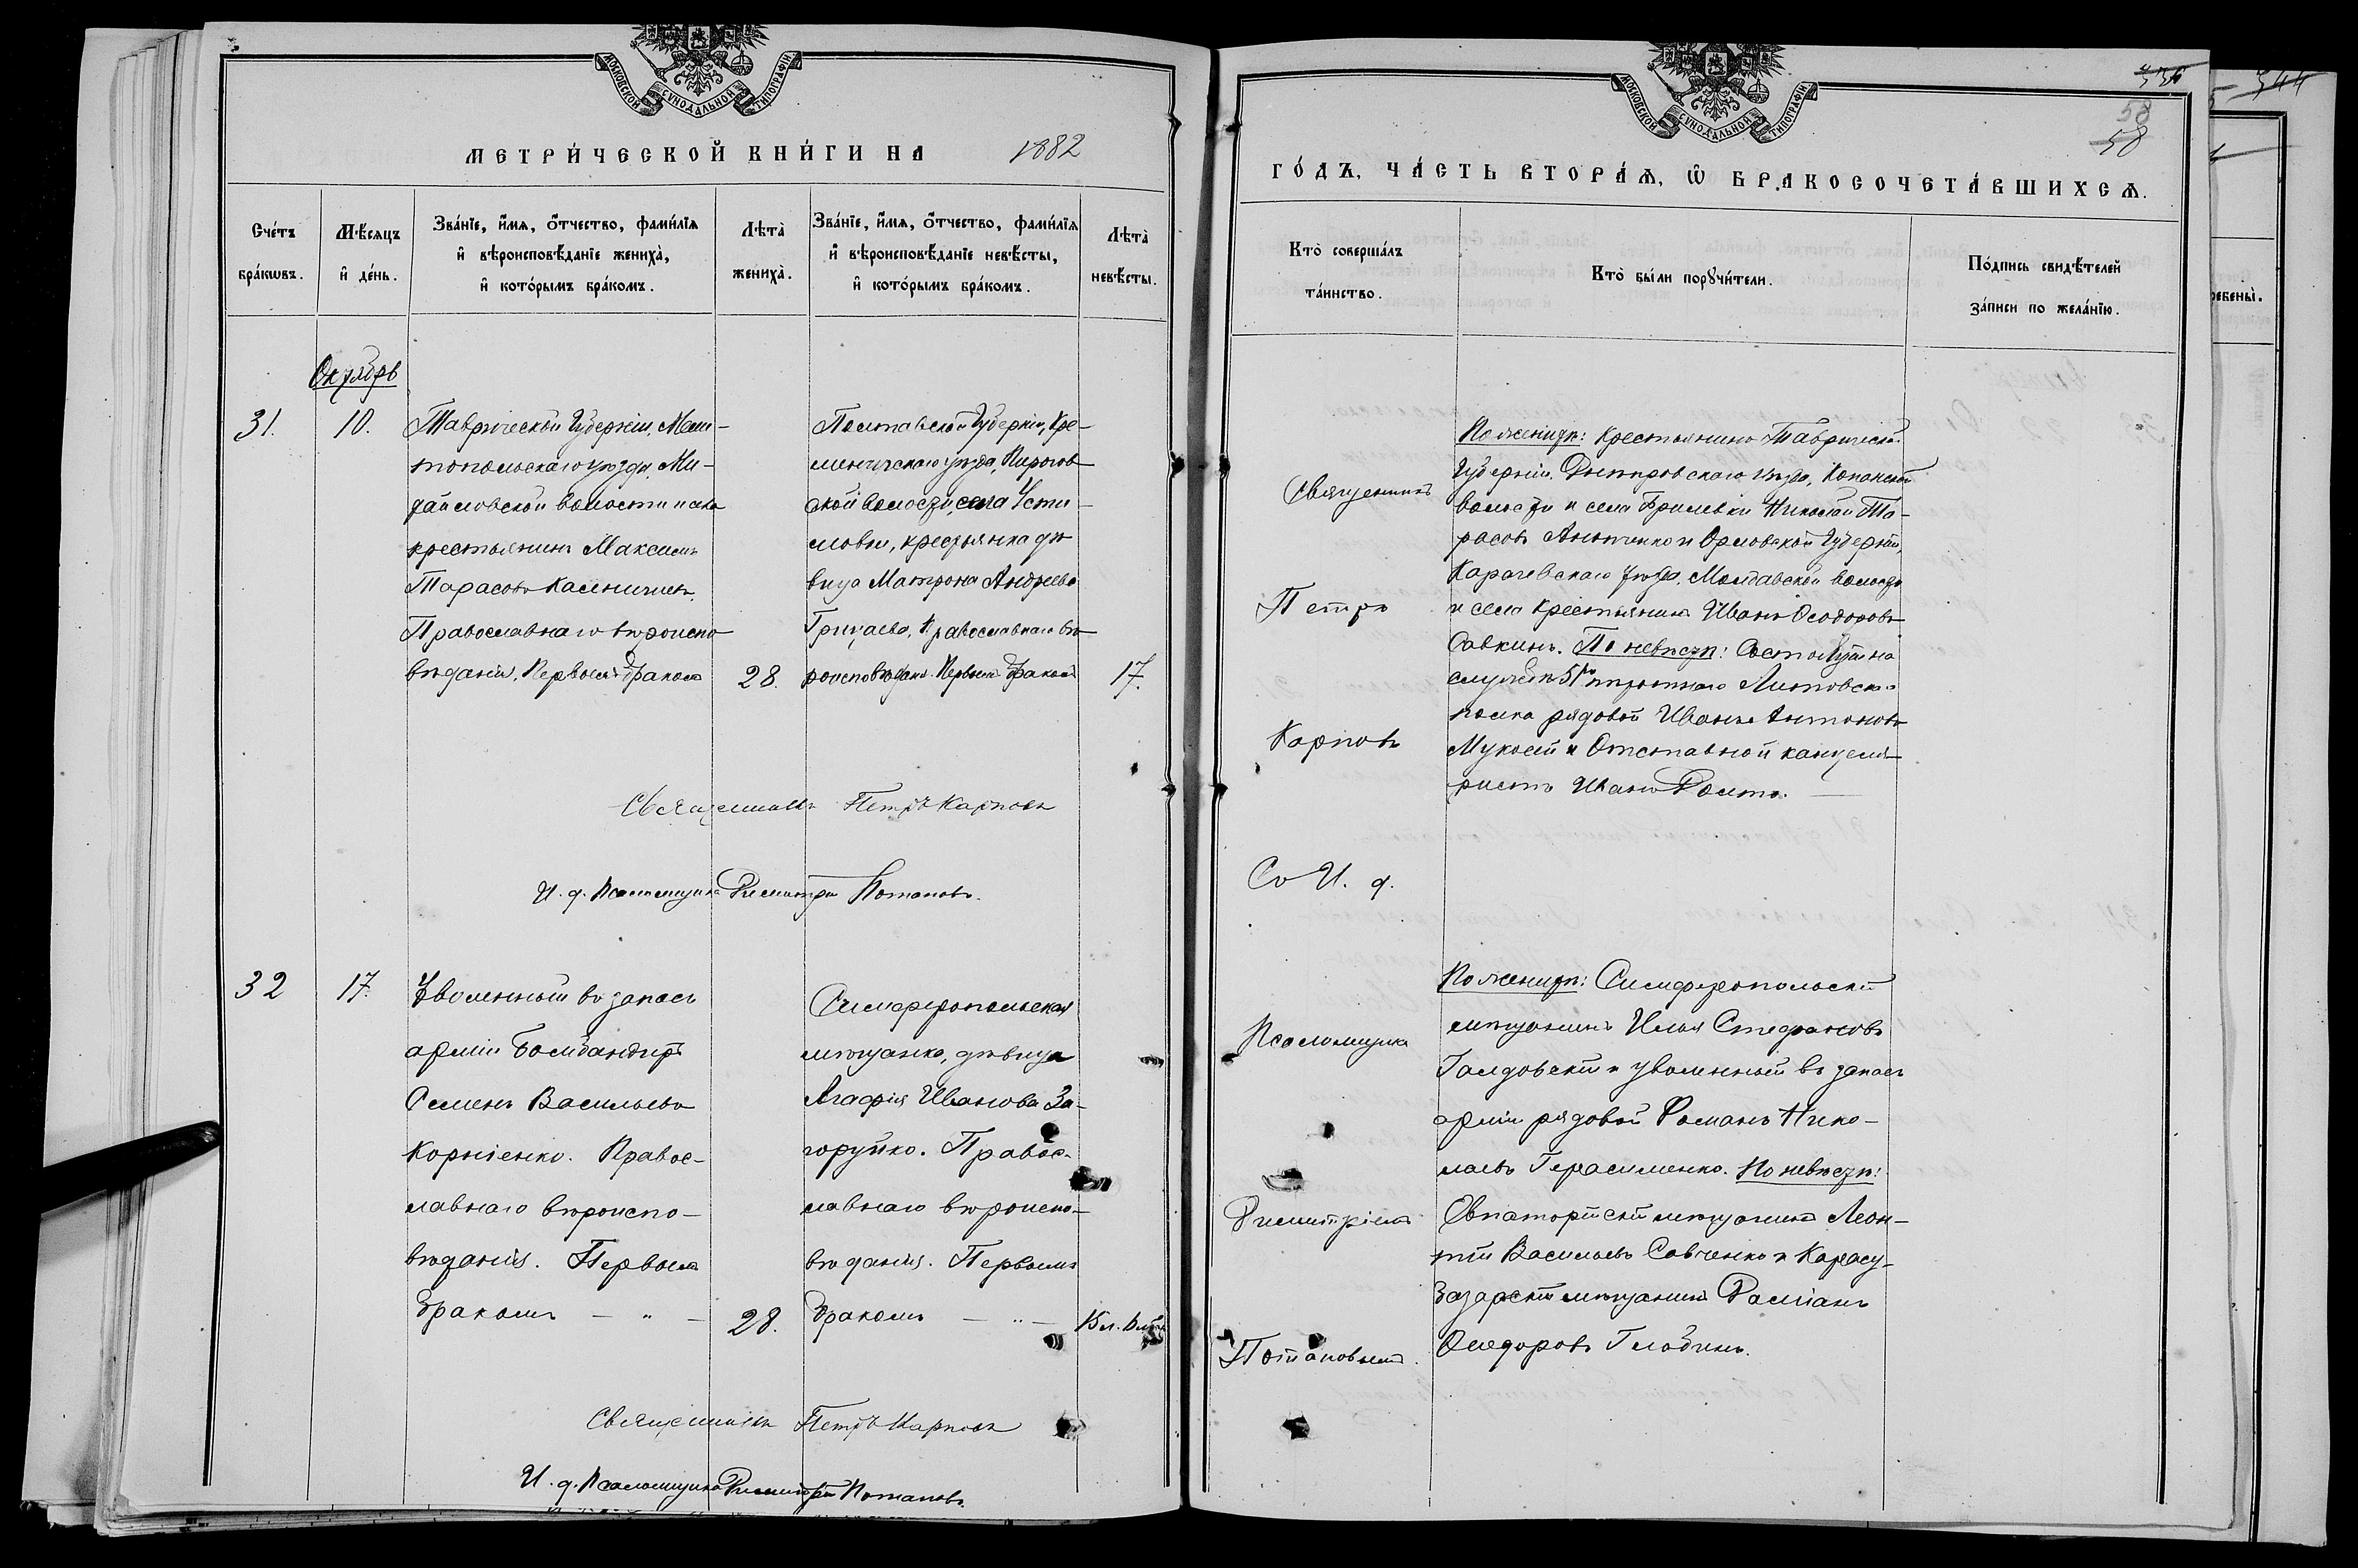 МОСКОВСКОЙ СУНОДАЛЬНОЙ ТИПОГРАФІИ
МЕТРИ́ЧЕСКОЙ КНИ́ГИ НА 1882
Сче́тъ бра́кѡвъ.
Мѣ́сяцъ и҆ де́нь.
Зва́нїе, и҆́мя, ѻ҆́тчество, фами́лїя
и҆ вѣроисповѣ́данїе жениха̀,
и҆ кото́рымъ бра́комъ.
Лѣта̀ жениха̀.
Зва́нїе, и҆́мя, ѻ҆́тчество, фами́лїя
и҆ вѣроисповѣ́данїе невѣ́сты,
и҆ кото́рымъ бра́комъ.
Лѣта̀ невѣ́сты.
Октябрь
31.
10.
Таврической Губерніи, Мели-
топольскаго уѣзда, Ми-
хайловской волости и села
крестьянинъ Максимъ
Тарасовъ Калиничен.
Православнаго вѣроиспо
вѣданія, Первымъ бракомъ
28.
Полтавской Губерніи, Кре-
менчугскаго уѣзда, Пирогов
ской волости, села Усти-
мовки, крестьянка дѣ
вица Матрона Андреева
Грицаева, Православнаго вѣ
роисповѣданія. Первымъ бракомъ
17.
Священникъ Петръ Карповъ
И. д. Псаломщика Димитрій Потаповъ.
32
17.
Уволенный въ запасъ
арміи Бомбандиръ
Семенъ Васильевъ
Корніенко. Правос-
лавнаго вѣроиспо-
вѣданія. Первымъ
бракомъ — „ —
28.
Симферопольская
мѣщанка, дѣвица
Агафія Иванова За-
горуйко. Правос-
лавнаго вѣроиспо-
вѣданія. Первымъ
бракомъ — „ —
Священникъ Петръ Карповъ
И. д. Псаломщика Димитрій Потаповъ.
МОСКОВСКОЙ СУНОДАЛЬНОЙ ТИПОГРАФІИ
336
58
58
344
ГО́ДЪ, ЧА́СТЬ ВТОРА́Ѧ, Ѽ БРАКОСОЧЕТА́ВШИХСѦ.
Кто̀ соверша́лъ
та́инство.
Кто̀ бы́ли порꙋчи́тели.
По́дпись свидѣ́телей
за́писи по жела́нїю.
Священникъ
Петръ
Карповъ
Съ И. д.
Псаломщика
Димитріемъ
Потаповымъ.
По женихѣ: Крестьянинъ Таврической
Губерніи, Днѣпровскаго уѣзда, Копанской
волости и села Брилевки Николай Та-
расовъ и Орловской Губерніи,
Карачевскаго уѣзда, Молдавской волости
и села крестьянинъ Иванъ Ѳеодоровъ
Савкинъ. По невѣстѣ: Состоящій на
службѣ 51го пѣхотнаго Литовскаго
полка рядовой Иванъ Антоновъ
и Отставной канцеля-
ристъ Иванъ
По женихѣ: Симферопольскій
мѣщанинъ Илья Стефановъ
Галдовскій и уволенный въ запасъ
арміи рядовой Романъ Нико-
лаевъ Герасименко. По невѣстѣ:
Евпаторійскій мѣщанинъ Леон-
тій Васильевъ Савченко и Карасу-
базарскій мѣщанинъ Даміанъ
Ѳеодоровъ Глобинъ.